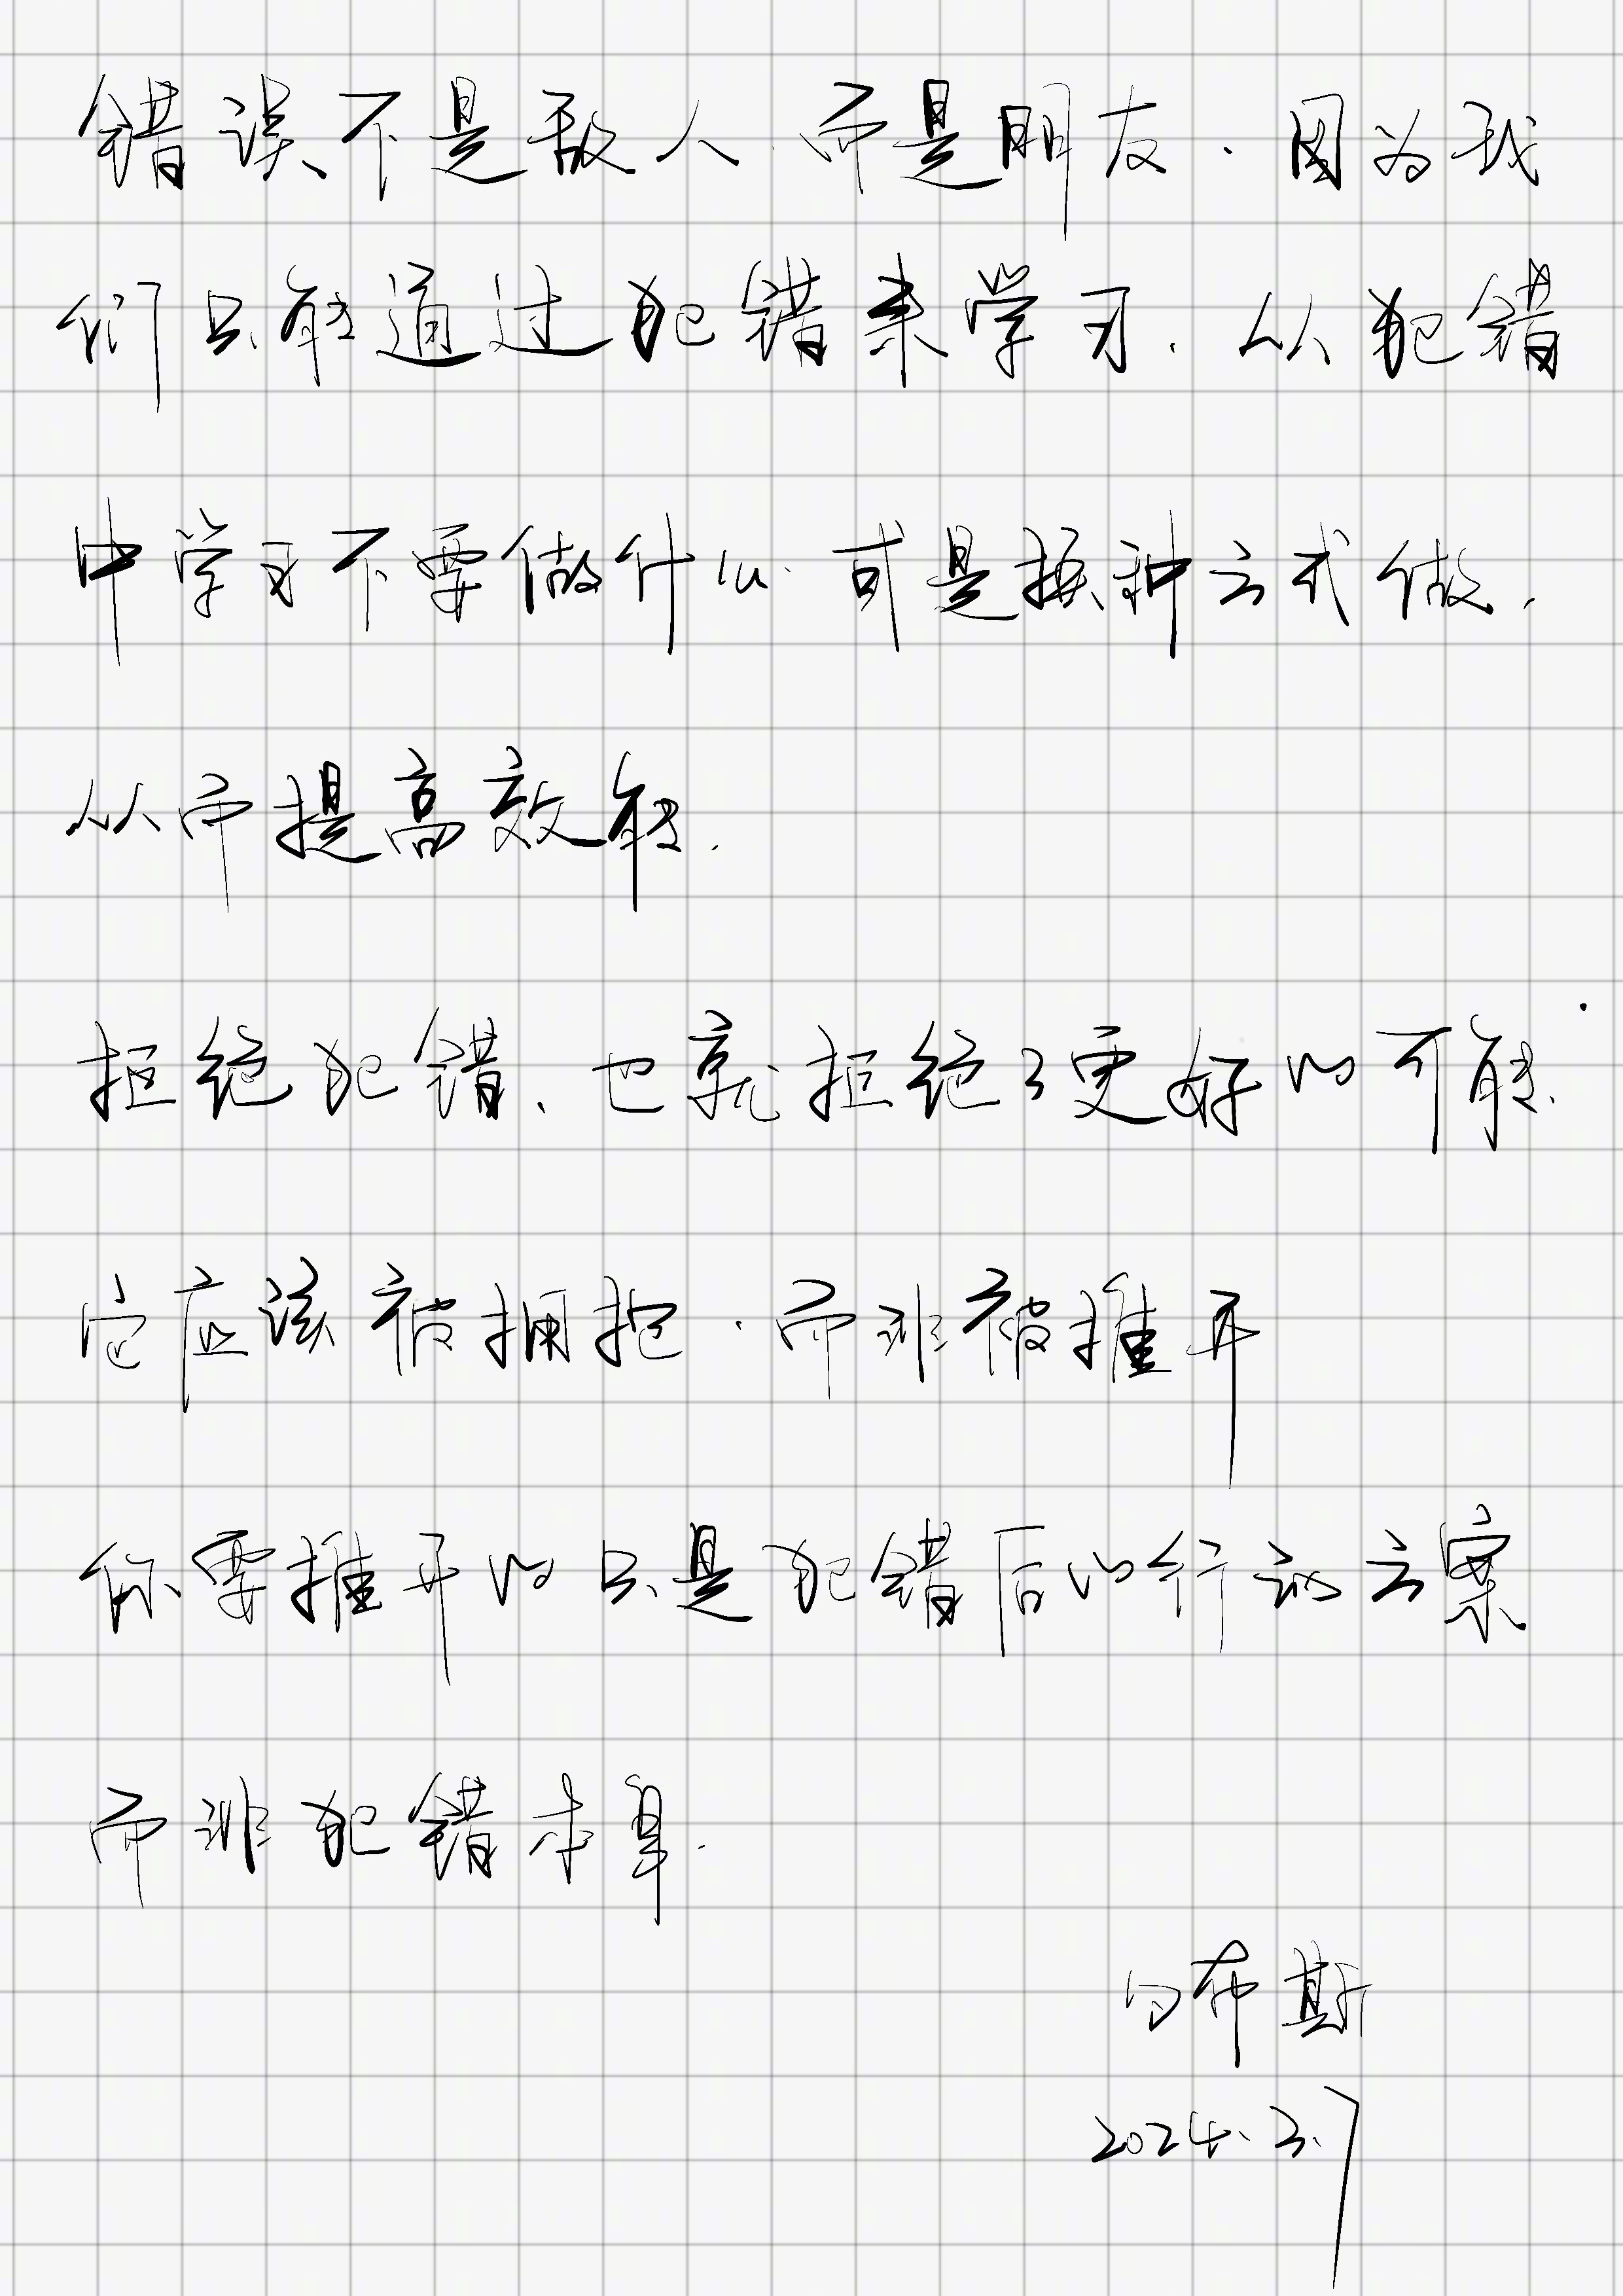 错误不是敌人.而是朋友.因为我
们只能通过犯错来学习.从犯错
中学习不要做什么.或是换种方式做.
从而提高效能.
拒绝犯错、也就拒绝了更好的可能.
它应该被拥抱.而非被推开
你要推开的只是犯错后的行动方案
而非犯错本身.
白布斯
2024.3.7